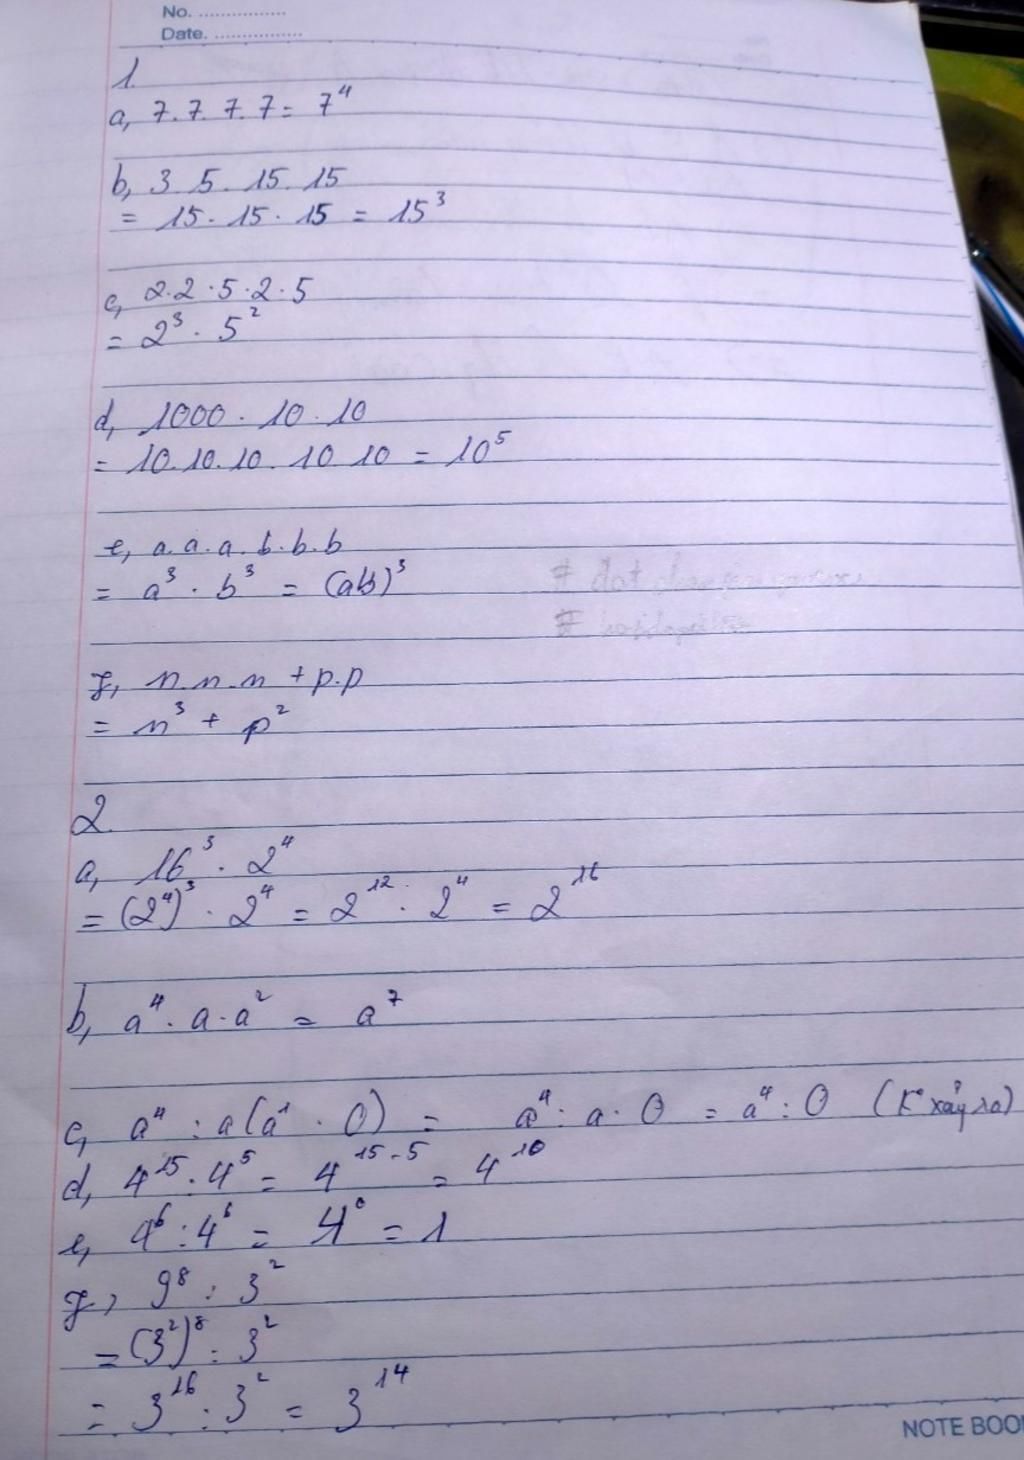 No. ................
Date. ................
1.
a, 7.7.7.7 = 7⁴
b, 3 5 . 15. 15
= 15 . 15 . 15 = 15³
c, 2.2 .5 .2 .5
= 2³ . 5²
d, 1000 . 10 . 10
= 10.10.10. 10 10 = 10⁵
e, a.a.a.b.b.b
= a³ . b³ = (ab)³
f, n.n.n + p.p
= n³ + p²
2.
a, 16³ . 2⁴
= (2⁴)³ . 2⁴ = 2¹² . 2⁴ = 2¹⁶
b, a⁴ . a . a² = a⁷
c, a⁴ : a(a¹ . 0) = a⁴ : a . 0 = a⁴ : 0 (K° xảy ra)
d, 4¹⁵ : 4⁵ = 4¹⁵⁻⁵ = 4¹⁰
e, 4⁶ : 4⁶ = 4⁰ = 1
f, 9⁸ : 3²
= (3²)⁸ : 3²
= 3¹⁶ : 3² = 3¹⁴
NOTE BOO